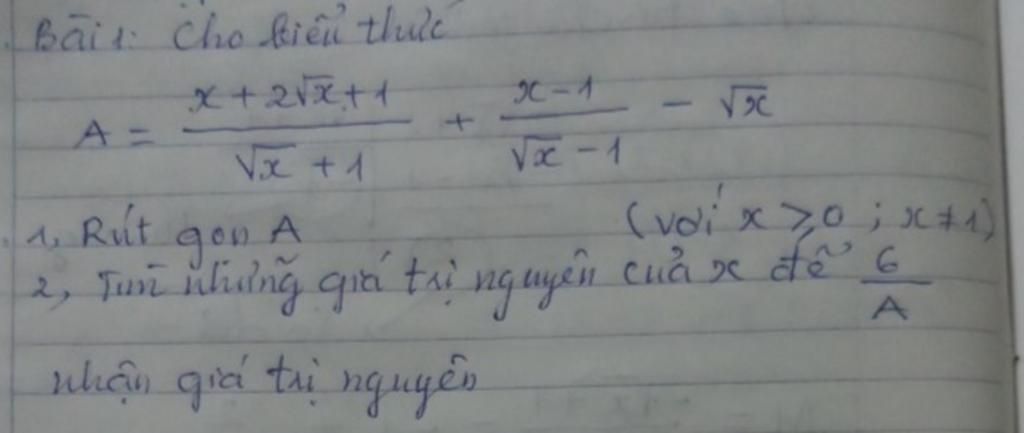 Bài 1: Cho biểu thức
A = \frac{x + 2\sqrt{x} + 1}{\sqrt{x} + 1} + \frac{x - 1}{\sqrt{x} - 1} - \sqrt{x}
1, Rút gọn A (với x ≥ 0 ; x ≠ 1)
2, Tìm những giá trị nguyên của x để \frac{6}{A}
nhận giá trị nguyên